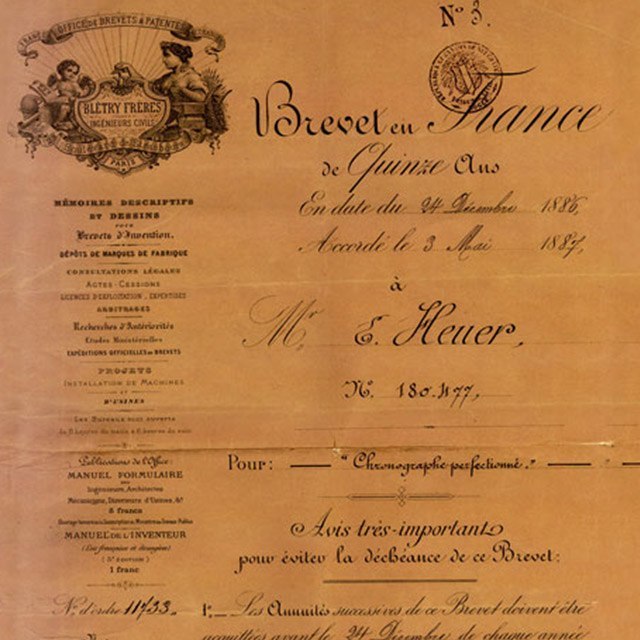 N° 3.
OFFICE DE BREVETS & PATENTES
BLÉTRY FRÈRES
INGÉNIEURS CIVILS
PARIS
Brevet en France
de Quinze Ans
En date du 24 Décembre 1886,
Accordé le 3 Mai 1887,
à
Mr E. Heuer,
N°. 180.477,
Pour: — "Chronographe perfectionné." —
Avis très-important
pour éviter la déchéance de ce Brevet:
1° — Les Annuités successives de ce Brevet doivent être
acquittées avant le 24 Décembre de chaque année
MÉMOIRES DESCRIPTIFS
ET DESSINS
POUR
Brevets d'Invention.
DÉPÔTS DE MARQUES DE FABRIQUE
CONSULTATIONS LÉGALES
ACTES-CESSIONS
LICENCES D'EXPLOITATION, EXPERTISES
ARBITRAGES
Recherches d'Antériorités
Etudes Ministérielles
EXPÉDITIONS OFFICIELLES DE BREVETS
PROJETS
INSTALLATION DE MACHINES
ET
D'USINES
Les Bureaux sont ouverts
Publications de l'Office:
MANUEL FORMULAIRE
Ingénieurs, Architectes
Mécaniciens, Directeurs d'Usines, &a
8 francs
MANUEL DE L'INVENTEUR
(Lois française et étrangères)
(5e ÉDITION)
1 franc
N° d'ordre 11433.